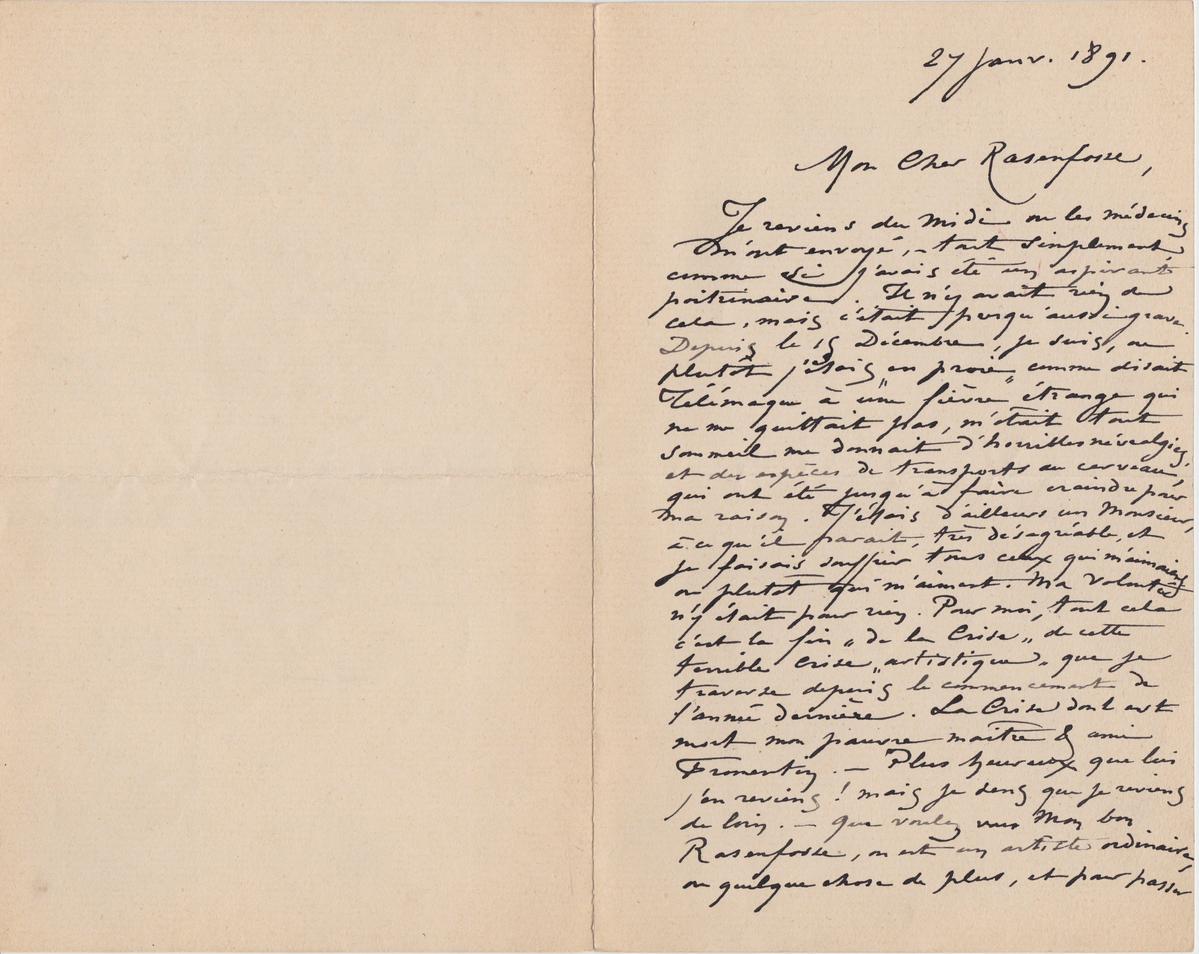 27 Janv. 1891.
Mon Cher Rasenfosse,
Je reviens du Midi ou les médecins
m'ont envoyé, – tout simplement
comme si j'avais été un aspirant
poitrinaire. Il n'y avait rien de
cela, mais c'était presqu'aussi grave.
Depuis le 15 Décembre, je suis, ou
plutôt j'étais „en proie„ comme disait
Télémaque à une fièvre étrange qui
ne me quittait pas, m'ôtait tout
sommeil me donnait d'horribles névralgies,
et des espèces de transports au cerveau,
qui ont été jusqu'à faire craindre pour
ma raison. J'étais d'ailleurs un Monsieur,
à ce qu'il parait, très désagréable, et
je faisais souffrir tous ceux qui m'aimaient
ou plutôt qui m'aiment. Ma volonté
n'y était pour rien. Pour moi, tout cela
c'est la fin „de la Crise„ de cette
terrible crise „artistique„ que je
traverse depuis le commencement de
l'année dernière. La Crise dont est
mort mon pauvre maître & ami
Fromentin. – Plus heureux que lui
j'en reviens ! mais je sens que je reviens
de loin. – Que voulez vous Mon bon
Rasenfosse, on est un artiste ordinaire,
ou quelque chose de plus, et pour passer